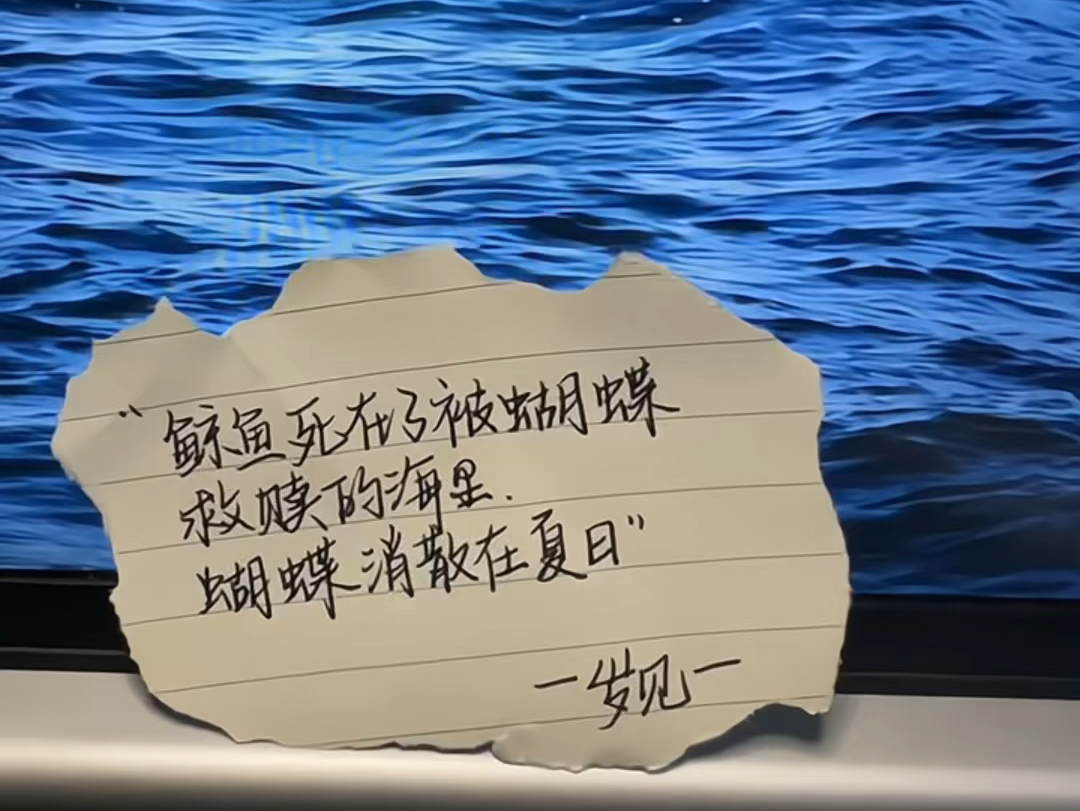 “鲸鱼死在了被蝴蝶
救赎的海里.
蝴蝶消散在夏日”
—岁见—